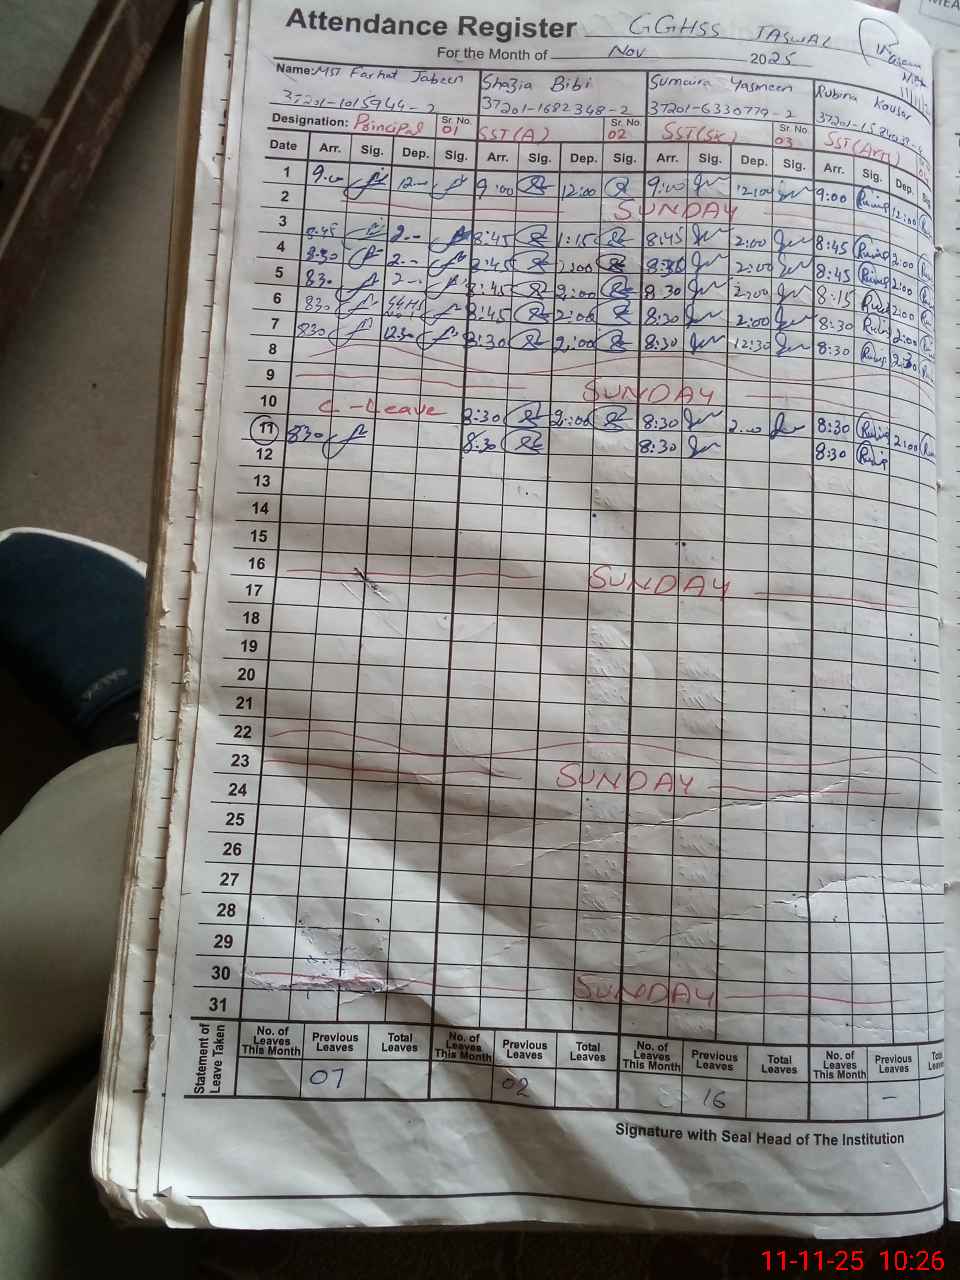 Attendance Register GGHSS TASWAL
For the Month of Nov 2025
Name: Mst Farhat Jabeen Shazia Bibi Sumaira Yasmeen Rubina Kousar
37201-1015944-2 37201-1682348-2 37201-6330779-2
Designation: Principal Sr. No. 01 SST(A) Sr. No. 02 SST(SK) Sr. No. 03 SST(Arts)
Date Arr. Sig. Dep. Sig. Arr. Sig. Dep. Sig. Arr. Sig. Dep. Sig. Arr. Sig. Dep.
1 9:00 12-- 9:00 12:00 9:00 12:00 9:00 12:00
2 SUNDAY
3 8:45 2-- 8:45 1:15 8:45 2:00 8:45 2:00
4 8:30 2-- 8:45 2:00 8:45 2:00
5 830 2-- 8:45 2:00 8:30 2:00 8:15 2:00
6 830 8:45 2:00 8:30 2:00 8:30 2:00
7 830 1230 8:30 2:00 8:30 12:30 8:30
8
9 SUNDAY
10 C-Leave 8:30 2:00 8:30 2:00 8:30 2:00
11 830 8:30 8:30 8:30
12
13
14
15
16 SUNDAY
17
18
19
20
21
22
23 SUNDAY
24
25
26
27
28
29
30 SUNDAY
31
Statement of Leave Taken
No. of Leaves This Month Previous Leaves Total Leaves No. of Leaves This Month Previous Leaves Total Leaves No. of Leaves This Month Previous Leaves Total Leaves No. of Leaves This Month Previous Leaves
07 02 16 –
Signature with Seal Head of The Institution
11-11-25 10:26